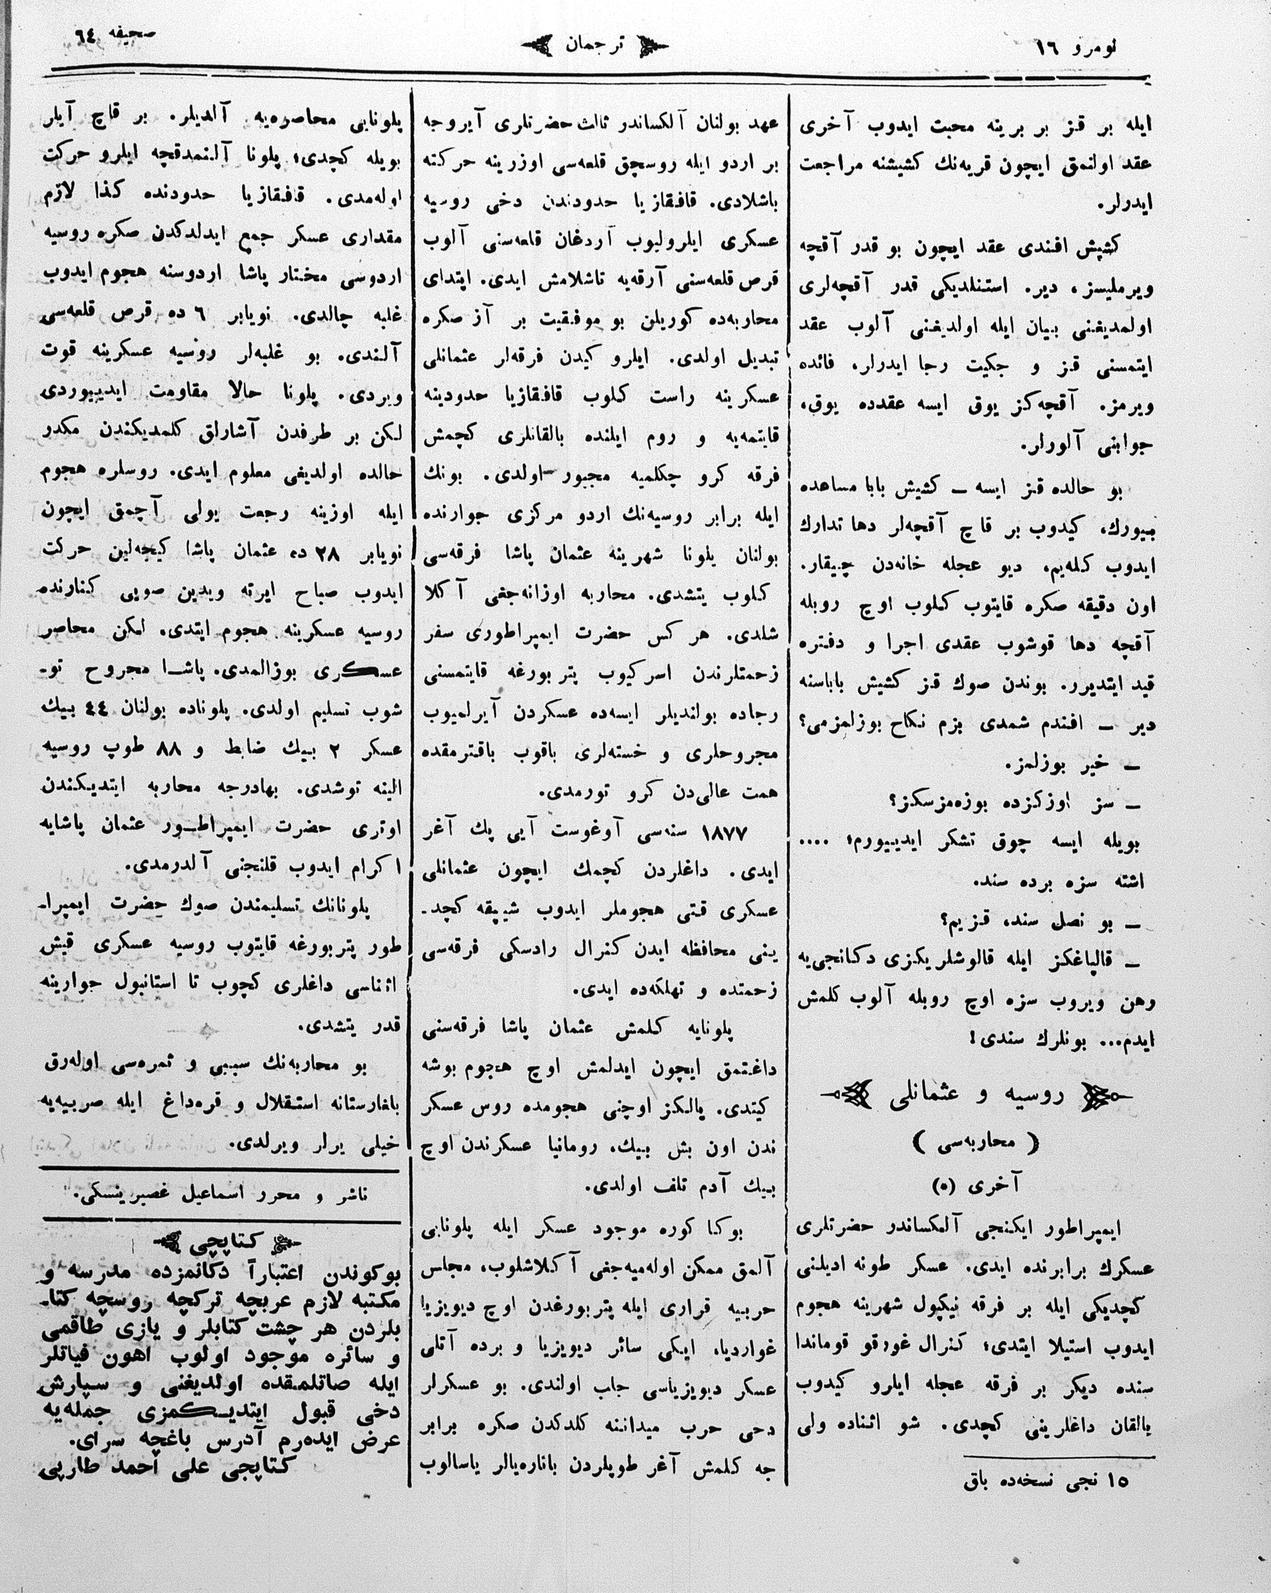 نومرو ١٦
ترجمان
صحیفه ٦٤
ایله بر قز بر برینه محبت ایدوب آخری
عقد اولنمق ایچون قریه‌نك كشیشنه مراجعت
ایدرلر.
كشیش افندی عقد ایچون بو قدر آقچه
ویرملیسز، دیر. استنلدیكی قدر آقچه‌لری
اولمدیغنی بیان ایله اولدیغنی آلوب عقد
ایتمسنی قز و جكیت رجا ایدرلر. فائده
ویرمز. آقچه‌كز یوق ایسه عقدده یوق،
جوابنی آلورلر.
بو حالده قز ایسه — كشیش بابا مساعده
بیورك، كیدوب بر قاچ آقچه‌لر دها تدارك
ایدوب كله‌یم، دیو عجله خانه‌دن چیقار.
اون دقیقه صكره قایتوب كلوب اوچ روبله
آقچه دها قوشوب عقدی اجرا و دفتره
قید ایتدیرر. بوندن صوك قز كشیش باباسنه
دیر — افندم شمدی بزم نكاح بوزلمزمی؟
— خیر بوزلمز.
— سز اوزكزده بوزه‌مزسكز؟
بویله ایسه چوق تشكر ایدییورم؛ ....
اشته سزه برده سند.
— بو نصل سند، قزیم؟
— قالپاغكز ایله قالوشلریكزی دكانجی‌یه
رهن ویروب سزه اوچ روبله آلوب كلمش
ایدم... بونلرك سندی!
روسیه و عثمانلی
( محاربه‌سی )
آخری (٥)
ایمپراطور ایكنجی آلكساندر حضرتلری
عسكرك برابرنده ایدی. عسكر طونه ادیلنی
كچدیكی ایله بر فرقه نیكپول شهرینه هجوم
ایدوب استیلا ایتدی؛ كنرال غورقو قوماندا
سنده دیكر بر فرقه عجله ایلرو كیدوب
بالقان داغلرینی كچدی. شو اثناده ولی
١٥ نجی نسخه‌ده باق
عهد بولنان آلكساندر ثالث حضرتلری آیروجه
بر اردو ایله روسچق قلعه‌سی اوزرینه حركته
باشلادی. قافقازیا حدودندن دخی روسیه
عسكری ایلرولیوب آردغان قلعه‌سنی آلوب
قرص قلعه‌سنی آرقه‌یه تاشلامش ایدی. اپتدای
محاربه‌ده كوریلن بو موفقیت بر آز صكره
تبدیل اولدی. ایلرو كیدن فرقه‌لر عثمانلی
عسكرینه راست كلوب قافقازیا حدودینه
قایتمه‌یه و روم ایلنده بالقانلری كچمش
فرقه كرو چكلمیه مجبور اولدی. بونك
ایله برابر روسیه‌نك اردو مركزی جوارنده
بولنان پلونا شهرینه عثمان پاشا فرقه‌سی
كلوب یتشدی. محاربه اوزانه‌جغی آكلا
شلدی. هر كس حضرت ایمپراطوری سفر
زحمتلرندن اسركیوب پتربورغه قایتمسنی
رجاده بولندیلر ایسه‌ده عسكردن آیرلمیوب
مجروحلری و خسته‌لری باقوب باقترمقده
همت عالی‌دن كرو تورمدی.
١٨٧٧ سنه‌سی آوغوست آیی پك آغر
ایدی. داغلردن كچمك ایچون عثمانلی
عسكری قتی هجوملر ایدوب شیپقه كچد-
ینی محافظه ایدن كنرال رادسكی فرقه‌سی
زحمتده و تهلكه‌ده ایدی.
پلونایه كلمش عثمان پاشا فرقه‌سنی
داغتمق ایچون ایدلمش اوچ هجوم بوشه
كیتدی. یالكز اوچنی هجومده روس عسكر
ندن اون بش بیك، رومانیا عسكرندن اوچ
بیك آدم تلف اولدی.
بوكا كوره موجود عسكر ایله پلونایی
آلمق ممكن اوله‌میه‌جغی آكلاشلوب، مجلس
حربیه قراری ایله پتربورغدن اوچ دیویزیا
غواردیا، ایكی سائر دیویزیا و برده آتلی
عسكر دیویزیاسی جلب اولندی. بو عسكرلر
دخی حرب میداننه كلدكدن صكره برابر
جه كلمش آغر طوپلردن باناره‌یالر یاسالوب
پلونایی محاصره‌یه آلدیلر. بر قاچ آیلر
بویله كچدی؛ پلونا آلنمدقچه ایلرو حركت
اوله‌مدی. قافقازیا حدودنده كذا لازم
مقداری عسكر جمع ایدلدكدن صكره روسیه
اردوسی مختار پاشا اردوسنه هجوم ایدوب
غلبه چالدی. نویابر ٦ ده قرص قلعه‌سی
آلندی. بو غلبه‌لر روسیه عسكرینه قوت
ویردی. پلونا حالا مقاومت ایدییوردی
لكن بر طرفدن آشاراق كلمدیكندن مكدر
حالده اولدیغی معلوم ایدی. روسلره هجوم
ایله اوزینه رجعت یولی آچمق ایچون
نویابر ٢٨ ده عثمان پاشا كیجه‌لین حركت
ایدوب صباح ایرته ویدین صویی كنارنده
روسیه عسكرینه هجوم ایتدی. لكن محاصر
عسكری بوزالمدی. پاشا مجروح تو-
شوب تسلیم اولدی. پلوناده بولنان ٤٤ بیك
عسكر ٢ بیك ضابط و ٨٨ طوپ روسیه
الینه توشدی. بهادرجه محاربه ایتدیكندن
اوتری حضرت ایمپراطور عثمان پاشایه
اكرام ایدوب قلنجنی آلدرمدی.
پلونانك تسلیمندن صوك حضرت ایمپرا-
طور پتربورغه قایتوب روسیه عسكری قیش
اثناسی داغلری كچوب تا استانبول جوارینه
قدر یتشدی.
بو محاربه‌نك سببی و ثمره‌سی اوله‌رق
باغارستانه استقلال و قره‌داغ ایله صربیه‌یه
خیلی یرلر ویرلدی.
ناشر و محرر اسماعیل غصپرینسكی.
كتابچی
بوكوندن اعتباراً دكانمزده مدرسه و
مكتبه لازم عربچه تركچه روسچه كتا-
بلردن هر چشت كتابلر و یازی طاقمی
و سائره موجود اولوب اهون فیاتلر
ایله صاتلمقده اولدیغنی و سپارش
دخی قبول ایتدیكمزی جمله‌یه
عرض ایده‌رم آدرس باغچه سرای.
كتابجی علی احمد طارپی